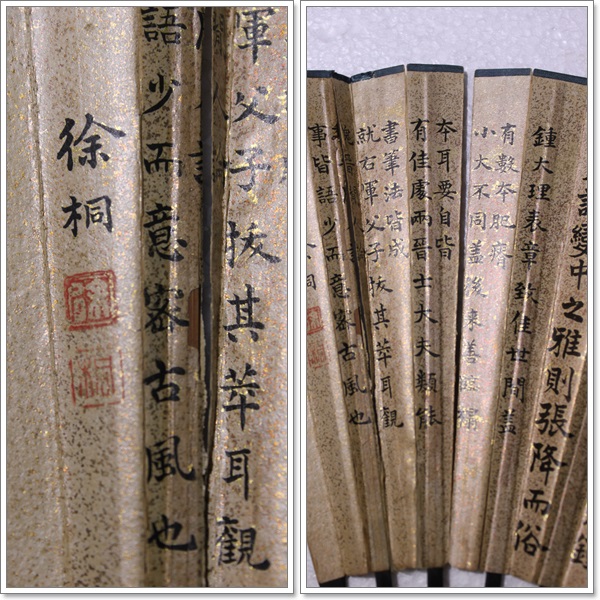 軍父子拔其萃耳觀
語少而意密古風也
徐桐
徐
桐
變中之雅則張降而俗
鍾大理表章致佳世間蓋
有數夲肥瘠
小大不同蓋後來善臨搨
夲耳要自皆
有佳處兩晉士大夫類能
書筆法皆成
就右軍父子拔其萃耳觀
事皆語少而意密古風也
桐